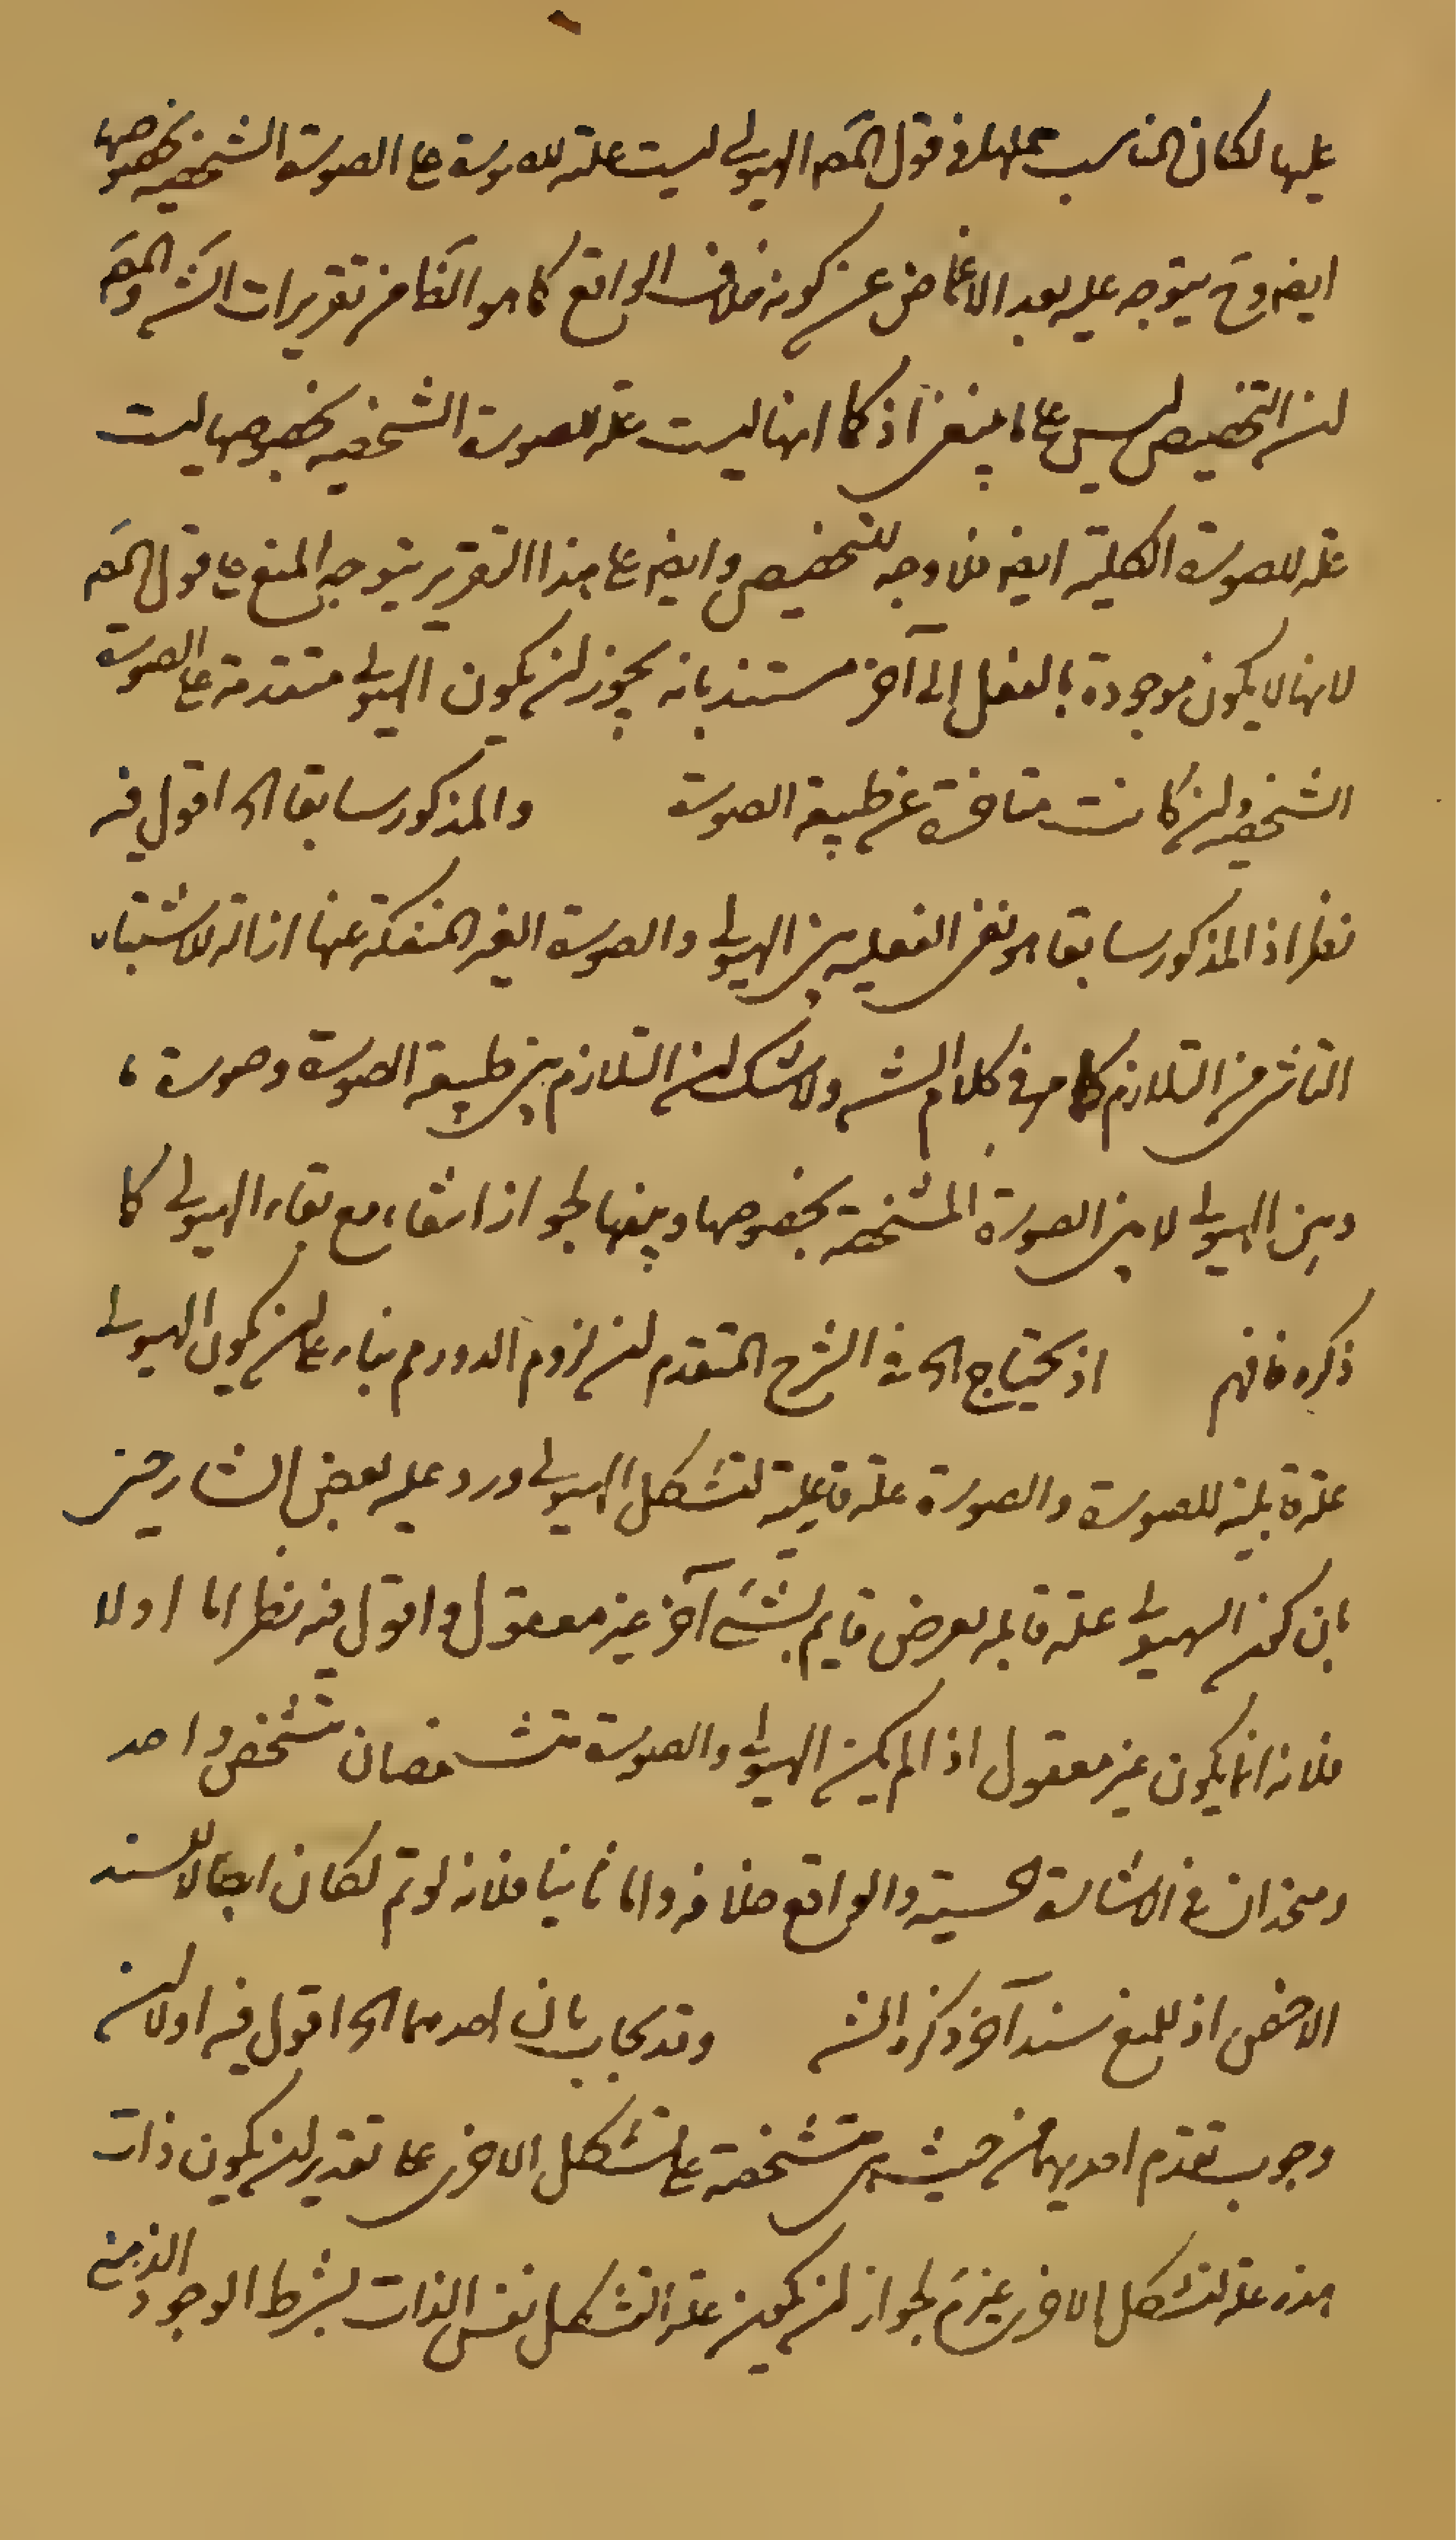 عليها لكان المناسب حملها في قول المص الهيولى ليست علة للصورة على الصورة الشخصية بخصوصها
ايض وح يتوجه عليه بعد الاغماض عن كونه خلاف الواقع كما هو الظ من تقريرات الش والمص
ان التخصيص ليس على ما ينبغي اذ كما انها ليست علة للصورة الشخصية بخصوصها ليست
علة للصورة الكلية ايض فلا وجه للتخصيص وايض على هذا التقرير يتوجه المنع على قول المص
لانها لا يكون موجودة بالفعل الى آخره مستند بانه يجوز ان يكون الهيولى متقدمة على الصورة
الشخصية وان كانت متاخرة عن طبيعة الصورة والمذكور سابقا الخ اقول فيه
نظر اذ المذكور سابقا هو نفي العلية بين الهيولى والصورة الغير المنفكة عنها ازالة للاشتباه
الناشي من التلازم كما مر في كلام الش ولا شك ان التلازم بين طبيعة الصورة وصورة ما
وبين الهيولى لا بين الصورة المشخصة بخصوصها وبينها لجواز انتفاءها مع بقاء الهيولى كما
ذكره فافهم اذ يحتاج الخ في الشرح المتقدم ان لزوم الدور مم بناء على ان يكون الهيولى
علة قابلية للصورة والصورة علة فاعلية لتشكل الهيولى ورد عليه بعض الشارحين
بان كون الهيولى علة قابلة لعرض قايم بشيء آخر غير معقول واقول فيه نظر اما اولا
فلانه انما يكون غير معقول اذا لم يكن الهيولى والصورة متشخصان بتشخص واحد
ومتحدان في الاشارة الحسية والواقع خلافه واما ثانيا فلانه لو تم لكان ابطالا للسند
الاخص اذ للمنع سند آخر ذكره الش وقد يجاب بان احدهما الخ اقول فيه اولا ان
وجوب تقدم احديهما من حيث هي متشخصة على تشكل الاخرى على تقدير ان يكون ذات
هذه علة لتشكل الاخرى غير مم لجواز ان يكون علة التشكل نفس الذات بشرط الوجود الذهني